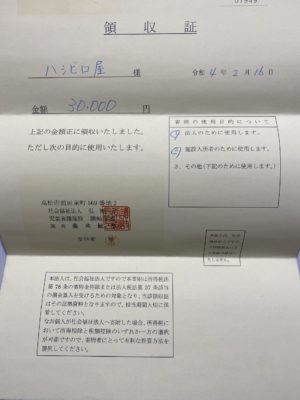 07949
領収証
ハシビロ屋 様
令和 4年 2月 16日
金額 30,000 円
上記の金額正に領収いたしました。
ただし次の目的に使用いたします。
寄附の使用目的について
1. 法人のために使用します。
2. 施設入所者のために使用します。
3. その他(下記のために使用します。)
高松市前田東町
社会福祉法人
本法人は、社会福祉法人ですので本寄附には所得税法
第 78 条の寄附金控除または法人税法第 37 条該当
の損金算入を受けるための対象となり、当該領収証
はその証拠書類となりますので、
なお個人が社会福祉法人へ寄附した場合、所得税にお
いて所得控除と税額控除のいずれか一方の選択
が可能ですので、寄附者にとって有利な計算方法を
選択してください。